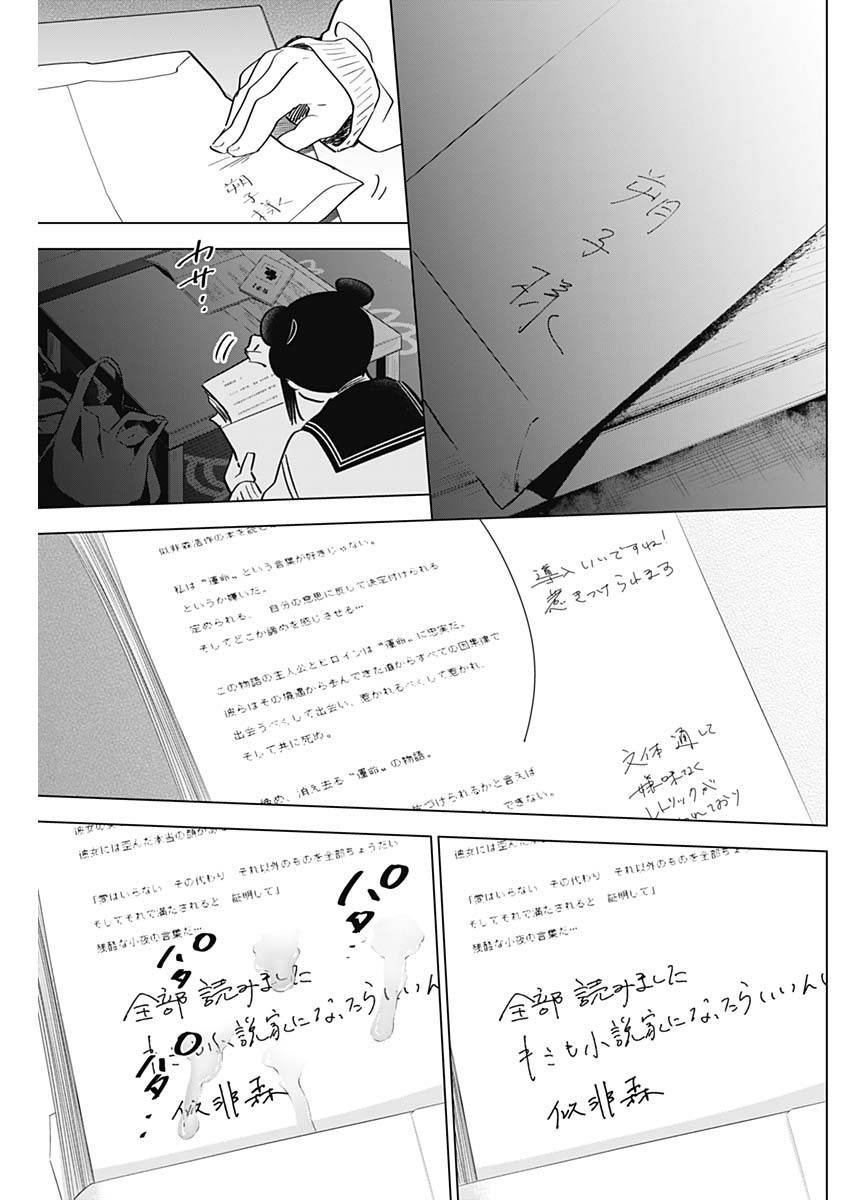 朔子様
朔子様
ガサ…
似非森浩作の本を読
私は〝運命〟という言葉が好きじゃない。
というか嫌いだ。
定められる、 自分の意思に反して決定付けられる
そしてどこか諦めを感じさせる…
この物語の主人公とヒロインは〝運命〟に忠実だ。
彼らはその境遇から歩んできた道からすべての因果律で
出会うべくして出会い、惹かれるべくして惹かれ、
そして共に死ぬ。
諦め、消え去る〝運命〟の物語。
づけられるかと言えば
できない。
導入いいですね!
惹きつけられます
文体通して
嫌味なく
レトリックが
れており
彼女には歪んだ本当の顔があ
「愛はいらない その代わり それ以外のものを全部ちょ
そしてそれで満たされると 証明して」
残酷な小夜の言葉だ…
全部読みました
キミも小説家になったらいいん
似非森
彼女には歪んだ本当の顔があ
「愛はいらない その代わり それ以外のものを全部ちょうだい
そしてそれで満たされると 証明して」
残酷な小夜の言葉だ…
全部読みました
キミも小説家になったらいいん
似非森
パタ
パタ
パタ…